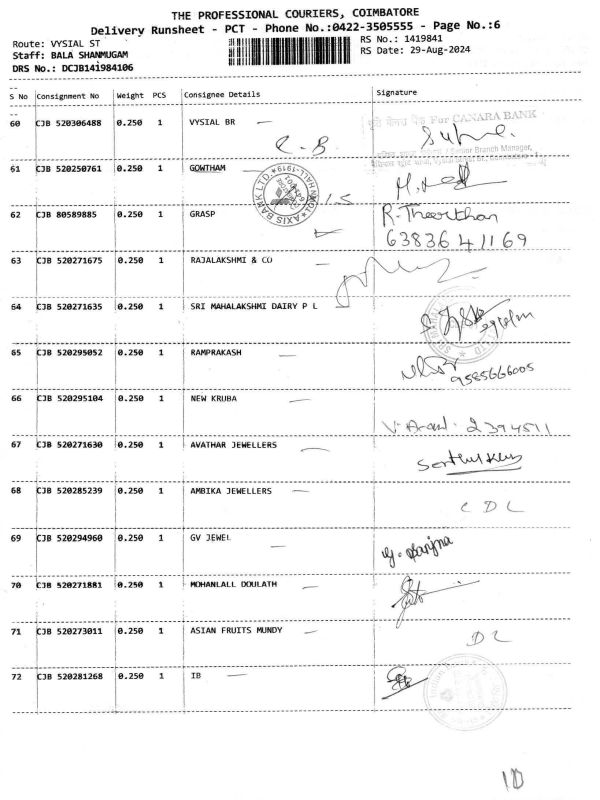 THE PROFESSIONAL COURIERS, COIMBATORE
Delivery Runsheet - PCT - Phone No.:0422-3505555 - Page No.:6
Route: VYSIAL ST
RS No.: 1419841
Staff: BALA SHANMUGAM
RS Date: 29-Aug-2024
DRS No.: DCJB141984106
S No Consignment No Weight PCS Consignee Details Signature
60 CJB 520306488 0.250 1 VYSIAL BR
For CANARA BANK
C. B
Senior Branch Manager,
61 CJB 520250761 0.250 1 GOWTHAM
AXIS BANK LTD.
62 CJB 80589885 0.250 1 GRASP
6383641169
63 CJB 520271675 0.250 1 RAJALAKSHMI & CO
64 CJB 520271635 0.250 1 SRI MAHALAKSHMI DAIRY P L
65 CJB 520295052 0.250 1 RAMPRAKASH
9585666005
66 CJB 520295104 0.250 1 NEW KRUBA
2394511
67 CJB 520271630 0.250 1 AVATHAR JEWELLERS
68 CJB 520285239 0.250 1 AMBIKA JEWELLERS
C D L
69 CJB 520294960 0.250 1 GV JEWEL
70 CJB 520271881 0.250 1 MOHANLALL DOULATH
71 CJB 520273011 0.250 1 ASIAN FRUITS MUNDY
D L
72 CJB 520281268 0.250 1 IB
10